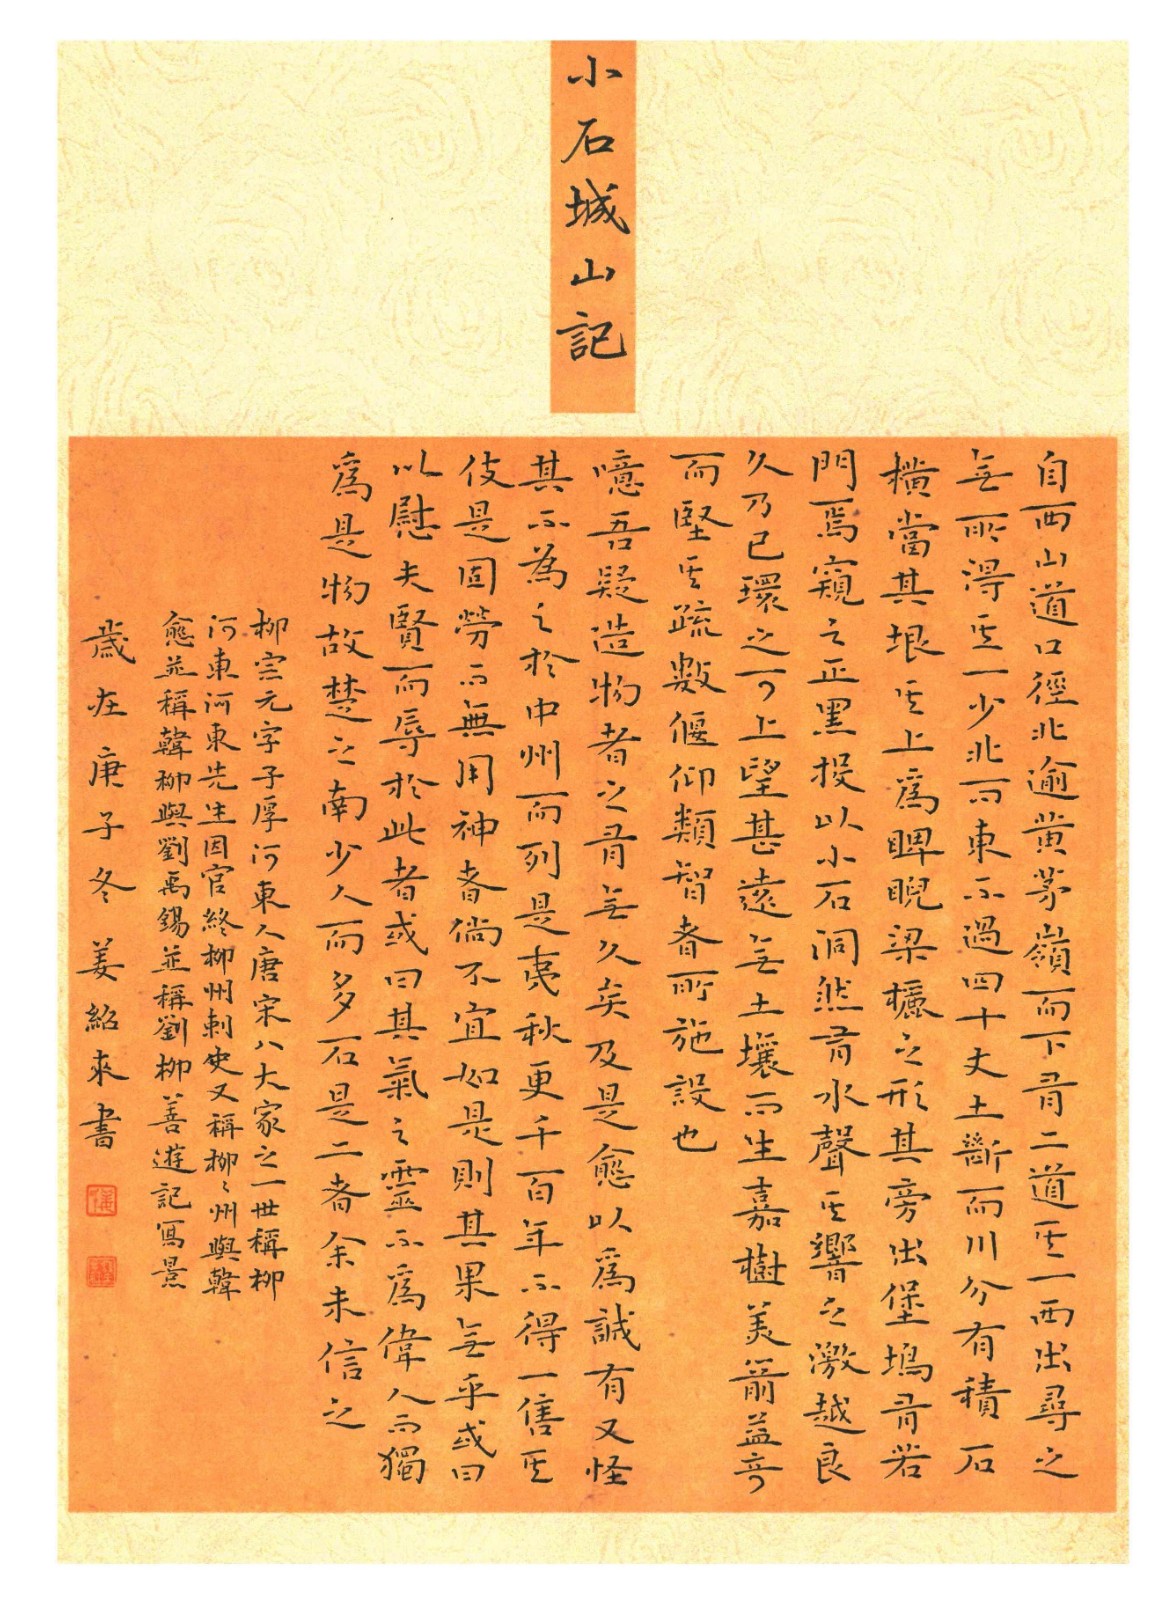 小石城山記
自西山道口徑北逾黄茅嶺而下有二道其一西出尋之
無所得其一少北而東不過四十丈土斷而川分有積石
橫當其垠其上爲睥睨梁欐之形其旁出堡塢有若
門焉窺之正黑投以小石洞然有水聲其響之激越良
久乃已環之可上望甚遠無土壤而生嘉樹美箭益奇
而堅其疏數偃仰類智者所施設也
噫吾疑造物者之有無久矣及是愈以爲誠有又怪
其不為之於中州而列是夷狄更千百年不得一售其
伎是固勞而無用神者倘不宜如是則其果無乎或曰
以慰夫賢而辱於此者或曰其氣之靈不爲偉人而獨
爲是物故楚之南少人而多石是二者余未信之
柳宗元字子厚河東人唐宋八大家之一世稱柳
河東河東先生因官終柳州刺史又稱柳〻州與韓
愈並稱韓柳與劉禹錫並稱劉柳善遊記寫景
歲在庚子冬姜紹來書